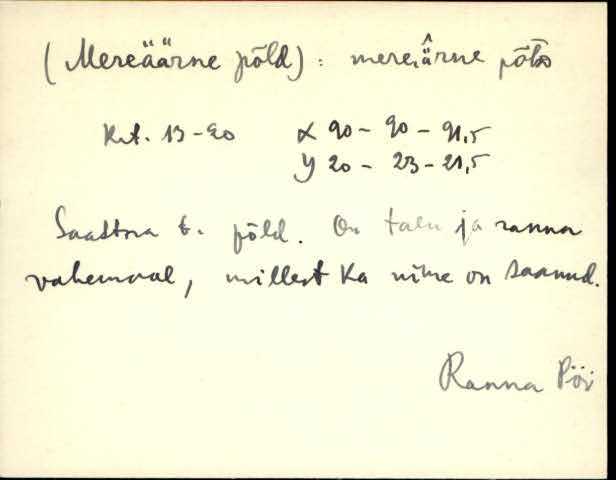 (Mereäärne põld) : mereäärne põłᴅ
Krt. 13-20 X 90 - 90 - 91,5
Y 20 - 23 - 21,5
Saastna t. põld. On talu ja ranna
vahemaal, millest ka nime on saanud.
Ranna Pöi